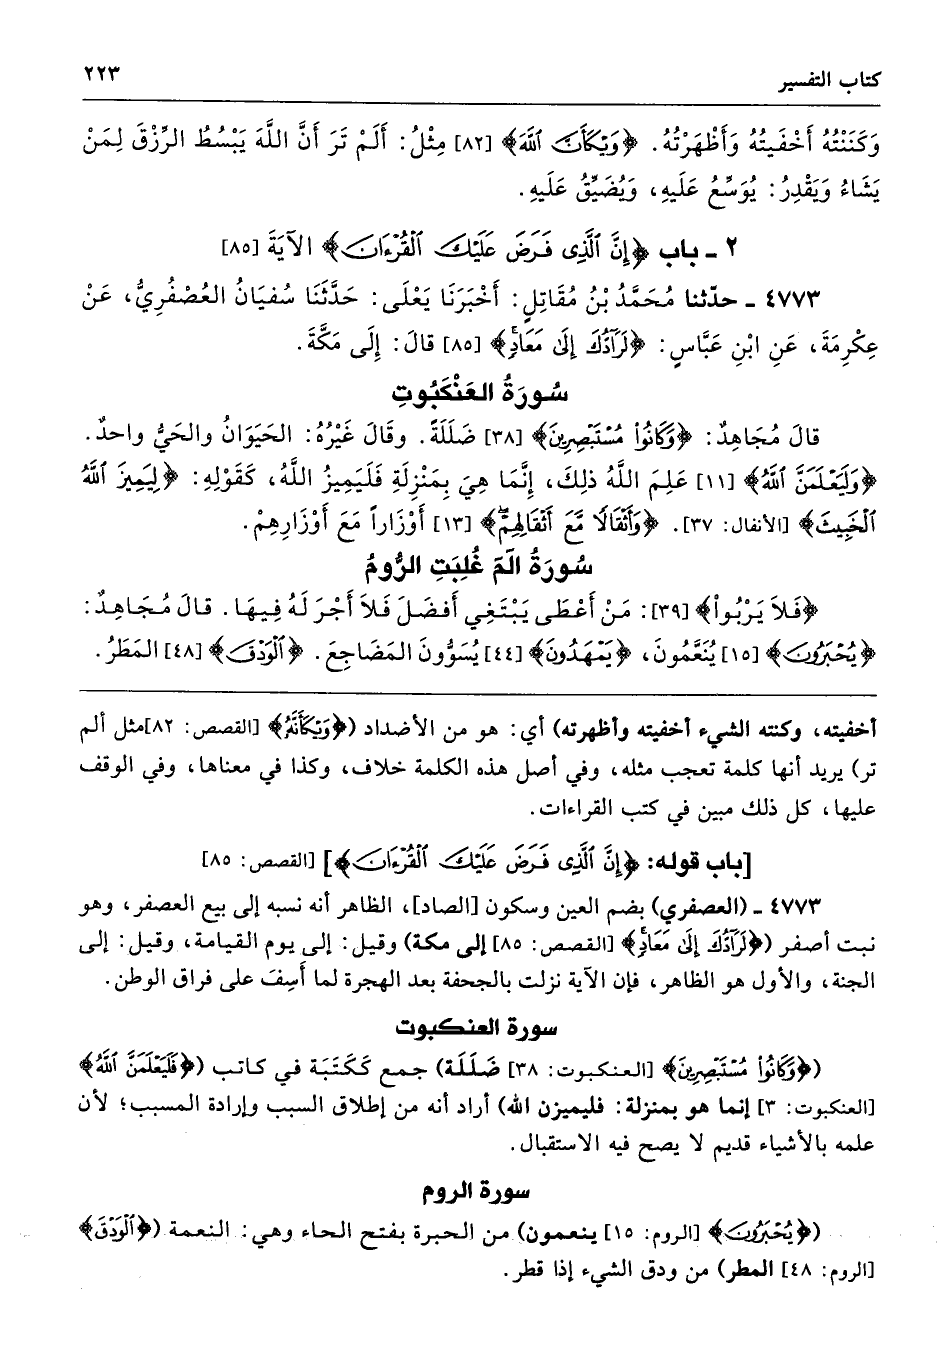 كتاب التفسير
٢٢٣
وَكَنَنْتُهُ أَخْفَيتُهُ وَأَظْهَرْتُهُ. ﴿وَيْكَأَنَّ ٱللَّهَ﴾ [٨٢] مِثْلُ: أَلَمْ تَرَ أَنَّ اللَّهَ يَبْسُطُ الرِّزْقَ لِمَنْ
يَشَاءُ وَيَقْدِرُ: يُوَسِّعُ عَلَيهِ، وَيُضَيِّقُ عَلَيهِ.
٢ ـ باب ﴿إِنَّ ٱلَّذِى فَرَضَ عَلَيْكَ ٱلْقُرْءَانَ﴾ الآيَةَ [٨٥]
٤٧٧٣ ـ حدّثنا مُحَمَّدُ بْنُ مُقَاتِلٍ: أَخْبَرَنَا يَعْلَى: حَدَّثَنَا سُفيَانُ العُصْفُرِيُّ، عَنْ
عِكْرِمَةَ، عَنِ ابْنِ عَبَّاسٍ: ﴿لَرَآدُّكَ إِلَىٰ مَعَادٍۚ﴾ [٨٥] قالَ: إِلَى مَكَّةَ.
سُورَةُ العَنْكَبُوتِ
قالَ مُجَاهِدٌ: ﴿وَكَانُوا۟ مُسْتَبْصِرِينَ﴾ [٣٨] ضَلَلَةً. وقالَ غَيْرُهُ: الحَيَوَانُ والحَيُّ واحدٌ.
﴿وَلَيَعْلَمَنَّ ٱللَّهُ﴾ [١١] عَلِمَ اللَّهُ ذلِكَ، إِنَّمَا هِيَ بِمَنْزِلَةِ فَلَيَمِيزُ اللَّهُ، كَقَوْلِهِ: ﴿لِيَمِيزَ ٱللَّهُ
ٱلْخَبِيثَ﴾ [الأنفال: ٣٧]. ﴿وَأَثْقَالًا مَّعَ أَثْقَالِهِمْۖ﴾ [١٣] أَوْزَاراً مَعَ أَوْزَارِهِمْ.
سُورَةُ الٓمٓ غُلِبَتِ الرُّومُ
﴿فَلَا يَرْبُوا۟﴾ [٣٩]: مَنْ أَعْطَى يَبْتَغِي أَفضَلَ فَلاَ أَجْرَ لَهُ فِيهَا. قالَ مُجَاهِدٌ:
﴿يُحْبَرُونَ﴾ [١٥] يُنَعَّمُونَ، ﴿يَمْهَدُونَ﴾ [٤٤] يُسَوُّونَ المَضَاجِعَ. ﴿ٱلْوَدْقَ﴾ [٤٨] المَطَرُ.
أخفيته، وكننته الشيء أخفيته وأظهرته) أي: هو من الأضداد (﴿وَيْكَأَنَّهُۥ﴾ [القصص: ٨٢]مثل ألم
تر) يريد أنها كلمة تعجب مثله، وفي أصل هذه الكلمة خلاف، وكذا في معناها، وفي الوقف
عليها، كل ذلك مبين في كتب القراءات.
[باب قوله: ﴿إِنَّ ٱلَّذِى فَرَضَ عَلَيْكَ ٱلْقُرْءَانَ﴾] [القصص: ٨٥]
٤٧٧٣ ـ (العصفري) بضم العين وسكون [الصاد]، الظاهر أنه نسبه إلى بيع العصفر، وهو
نبت أصفر (﴿لَرَآدُّكَ إِلَىٰ مَعَادٍۚ﴾ [القصص: ٨٥] إلى مكة) وقيل: إلى يوم القيامة، وقيل: إلى
الجنة، والأول هو الظاهر، فإن الآية نزلت بالجحفة بعد الهجرة لما أَسِفَ على فراق الوطن.
سورة العنكبوت
(﴿وَكَانُوا۟ مُسْتَبْصِرِينَ﴾ [العنكبوت: ٣٨] ضَلَلَة) جمع كَكَتَبَة في كاتب (﴿فَلَيَعْلَمَنَّ ٱللَّهُ﴾
[العنكبوت: ٣] إنما هو بمنزلة: فليميزن الله) أراد أنه من إطلاق السبب وإرادة المسبب؛ لأن
علمه بالأشياء قديم لا يصح فيه الاستقبال.
سورة الروم
(﴿يُحْبَرُونَ﴾ [الروم: ١٥] ينعمون) من الحبرة بفتح الحاء وهي: النعمة (﴿ٱلْوَدْقَ﴾
[الروم: ٤٨] المطر) من ودق الشيء إذا قطر.